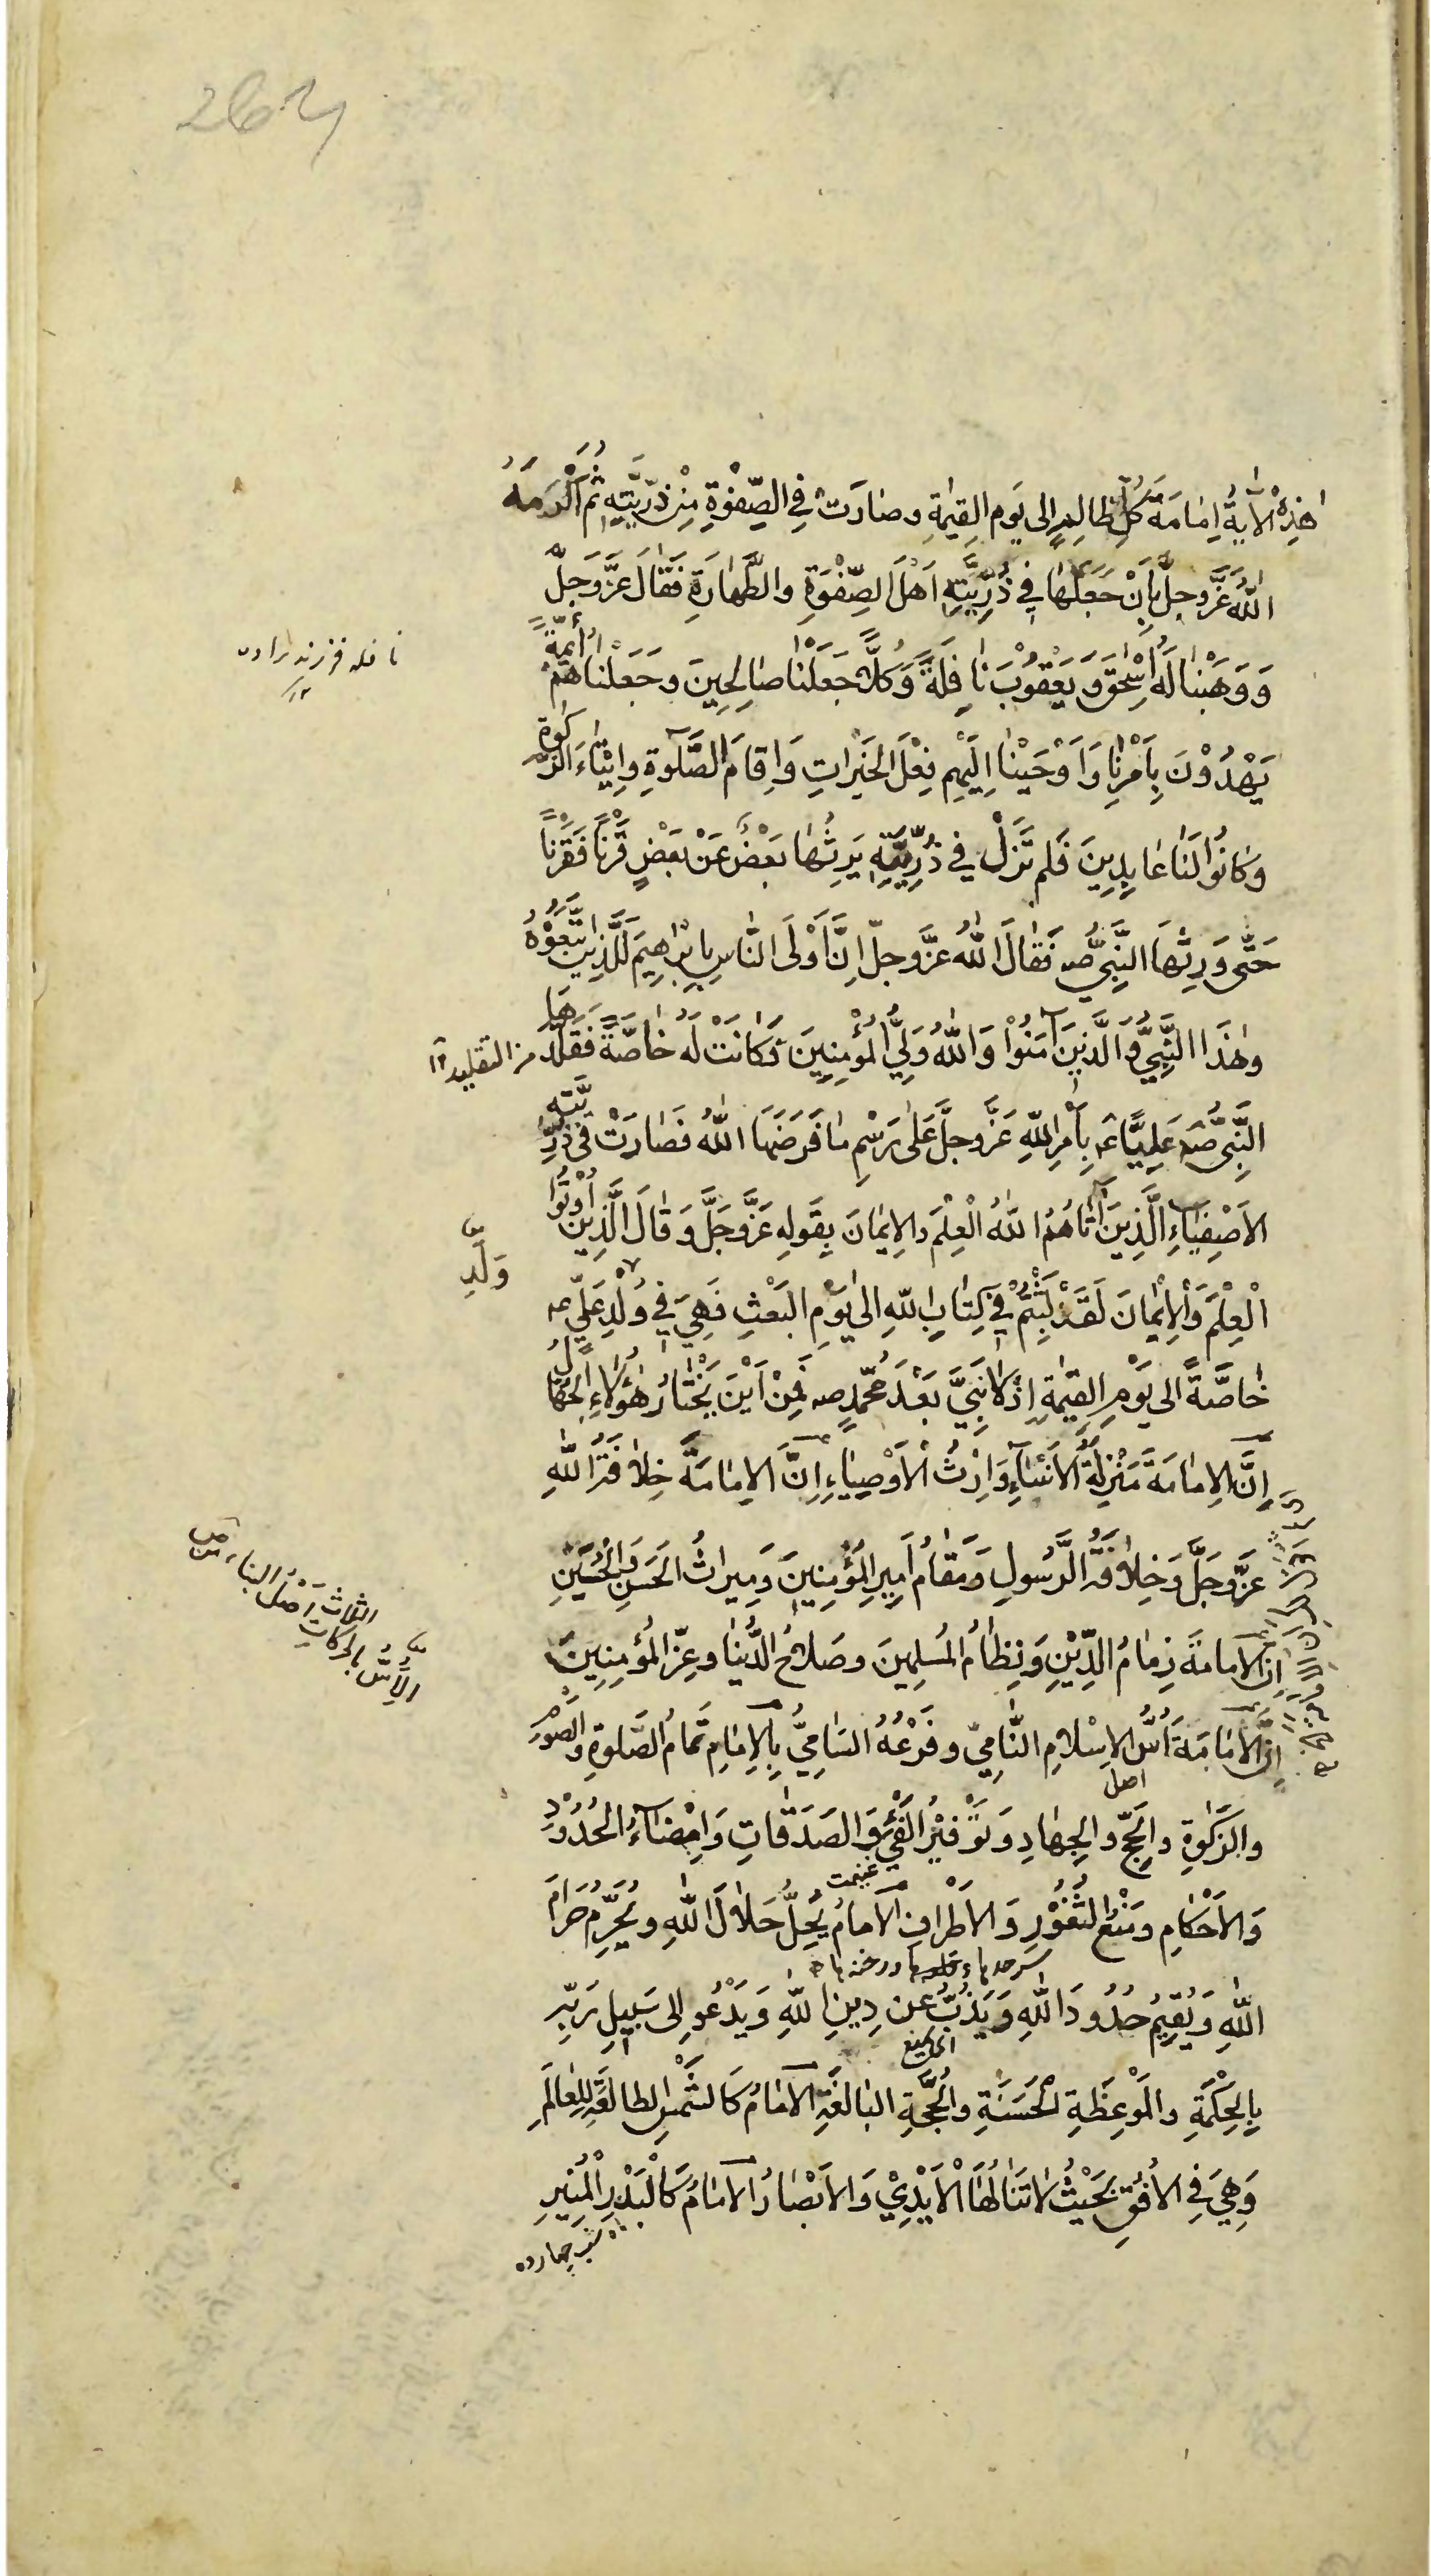 264
هٰذِهِ الْاٰيَةُ اِمَامَةَ كُلِّ ظَالِمٍ اِلى يَوم القِيٰمَةِ وصَارَتْ فِي الصِّفْوَةِ مِنْ ذُرِّيَّتِهِ ثُمَّ اَكْرَمَهُ
اللّٰهُ عَزَّ وجلَّ بِاَنْ جَعَلَهَا فِي ذُرِّيَّتِهِ اَهْلَ الصِّفْوَةِ والطَّهَارَةِ فَقَالَ عَزَّ وَجَلَّ
وَوَهَبْنَا لَهُ اِسْحٰقَ وَيَعْقُوْبَ نَافِلَةً وَكُلًّا جَعَلْنَا صَالِحِينَ وَجَعَلْنَاهُمْ اَئِمَّةً
نافله فرزند زاده ۱۲
يَهْدُوْنَ بِاَمْرِنَا وَاَوْحَيْنَا اِلَيْهِم فِعْلَ الخَيْرَاتِ وَاِقَامَ الصَّلٰوةِ وَاِيْتَاءَ الزَّكٰوةِ
وَكَانُوا لَنَا عَابِدِينَ فَلَم تَزَلْ في ذُرِّيَّتِهِ يَرِثُهَا بَعْضٌ عَنْ بَعْضٍ قَرْنًا فَقَرْنًا
حَتّٰى وَرِثَهَا النَّبِيُّ صہ فَقَالَ اللّٰهُ عَزَّ وجلّ اِنَّ اَوْلَى النَّاسِ بِاِبْرَاهِيمَ لَلَّذِينَ اتَّبَعُوْهُ
وهٰذَا النَّبِيُّ وَالَّذِينَ آمَنُوْا وَاللّٰهُ وَلِيُّ الْمُؤْمِنِينَ فَكَانَتْ لَهُ خَاصَّةً فَقَلَّدَهَا
من التقليد ۱۲
النَّبِيُّ صہ عَلِيًّا عہ بِاَمْرِ اللّٰهِ عَزَّ وجلَّ عَلٰى رَسْمِ مَا فَرَضَهَا اللّٰهُ فَصَارَتْ فِي ذُرِّيَّتِهِ
الاَصْفِيَاءِ الَّذِينَ آتَاهُمُ اللّٰهُ الْعِلْمَ والاِيمَانَ بِقَولِهِ عَزَّ وجَلَّ وَقَالَ الَّذِينَ اُوْتُوا
الْعِلْمَ وَالْاِيْمَانَ لَقَدْ لَبِثْتُمْ فِي كِتَابِ اللّٰهِ اِلى يَوْمِ البَعْثِ فَهِيَ فِي وُلْدِ عَلِيٍّ عہ
وَلَدِ
خَاصَّةً اِلى يَوْمِ القِيٰمَةِ اِذْ لَا نَبِيَّ بَعْدَ مُحَمَّدٍ صہ فَمِنْ اَيْنَ يَخْتَارُ هٰؤُلَاءِ الجُهَّالُ
اِنَّ الاِمَامَةَ مَنْزِلَةُ الاَنْبِيَاءِ وَاِرْثُ الْاَوْصِيَاءِ اِنَّ الاِمَامَةَ خِلَافَةُ اللّٰهِ
عَزَّ وجَلَّ وَخِلَافَةُ الرَّسُولِ وَمَقَامُ اَمِيرِ الْمُؤْمِنِينَ وَمِيرَاثُ الحَسَنِ وَالْحُسَيْنِ
اِنَّ الاِمَامَةَ زِمَامُ الدِّيْنِ وَنِظَامُ المُسلِمِينَ وصَلَاحُ الدُّنْيَا وعِزُّ المُؤمِنِينَ
الاُسّ بالحركات الثلاث اصلُ البناء
اِنَّ الاِمَامَةَ اُسُّ الاِسْلَامِ النَّامِيّ وفَرْعُهُ السَّامِيُّ بِالاِمَامِ تَمَامُ الصَّلٰوةِ والصَّوْمِ
اصل
والزَّكٰوةِ والحَجِّ والجِهَادِ وَتَوْفِيْرُ الْفَيْءِ وَالصَدَقَاتِ وَاِمْضَاءُ الْحُدُوْدِ
غنيمت
وَالاَحْكَامِ ومَنْعُ الثُّغُوْرِ وَالاَطْرَافِ الاِمَامُ يُحِلُّ حَلَالَ اللّٰهِ وَيُحَرِّمُ حَرَامَ
اللّٰهِ وَيُقِيْمُ حُدُودَ اللّٰهِ وَيَذُبُّ عَن دِينِ اللّٰهِ وَيَدْعُو اِلى سَبِيلِ رَبِّهِ
بِالحِكْمَةِ والمَوْعِظَةِ الْحَسَنَةِ والحُجَّةِ البَالِغَةِ الاِمَامُ كَالشَّمْسِ الطَالِعَةِ لِلعَالَمِ
وَهِيَ فِي الاُفُقِ بِحَيْثُ لَا تَنَالُهَا الْاَيْدِيْ وَالاَبْصَارُ الاِمَامُ كَالْبَدْرِ الْمُنِيرِ
شب چهارده